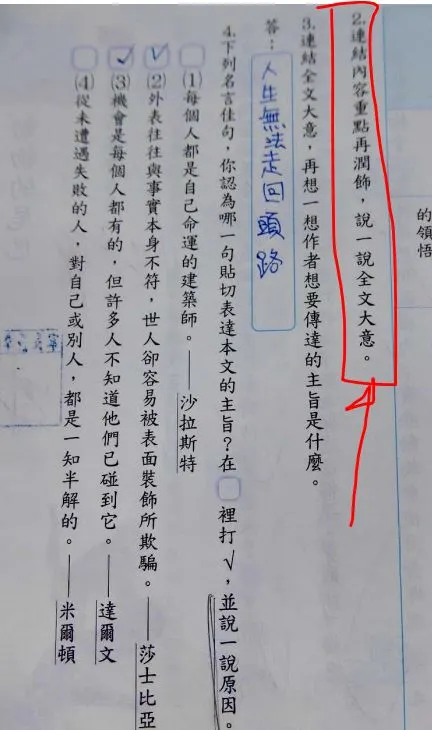 的領悟
2.連結內容重點再潤飾，說一說全文大意。
3.連結全文大意，再想一想作者想要傳達的主旨是什麼。
答：人生無法走回頭路
4.下列名言佳句，你認為哪一句貼切表達本文的主旨？在□裡打√，並說一說原因。
□(1)每個人都是自己命運的建築師。——沙拉斯特
☑(2)外表往往與事實本身不符，世人卻容易被表面裝飾所欺騙。——莎士比亞
☑(3)機會是每個人都有的，但許多人不知道他們已碰到它。——達爾文
□(4)從未遭遇失敗的人，對自己或別人，都是一知半解的。——米爾頓